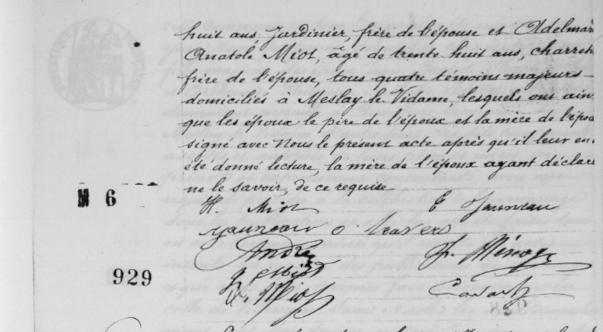 huit ans, Jardinier, frère de l'épouse et Adelmar
Anatole Miot, âgé de trente huit ans, charret
frère de l'épouse, tous quatre témoins majeurs
domiciliés à Meslay le Vidame, lesquels ont ain
que les époux le père de l'époux et la mère de l'épou
signé avec Nous le présent acte après qu'il leur en
été donné lecture, la mère de l'époux ayant déclaré
ne le savoir, de ce requise
N 6
H. Miot E Jauneau
Jauneau O. travers
André
929